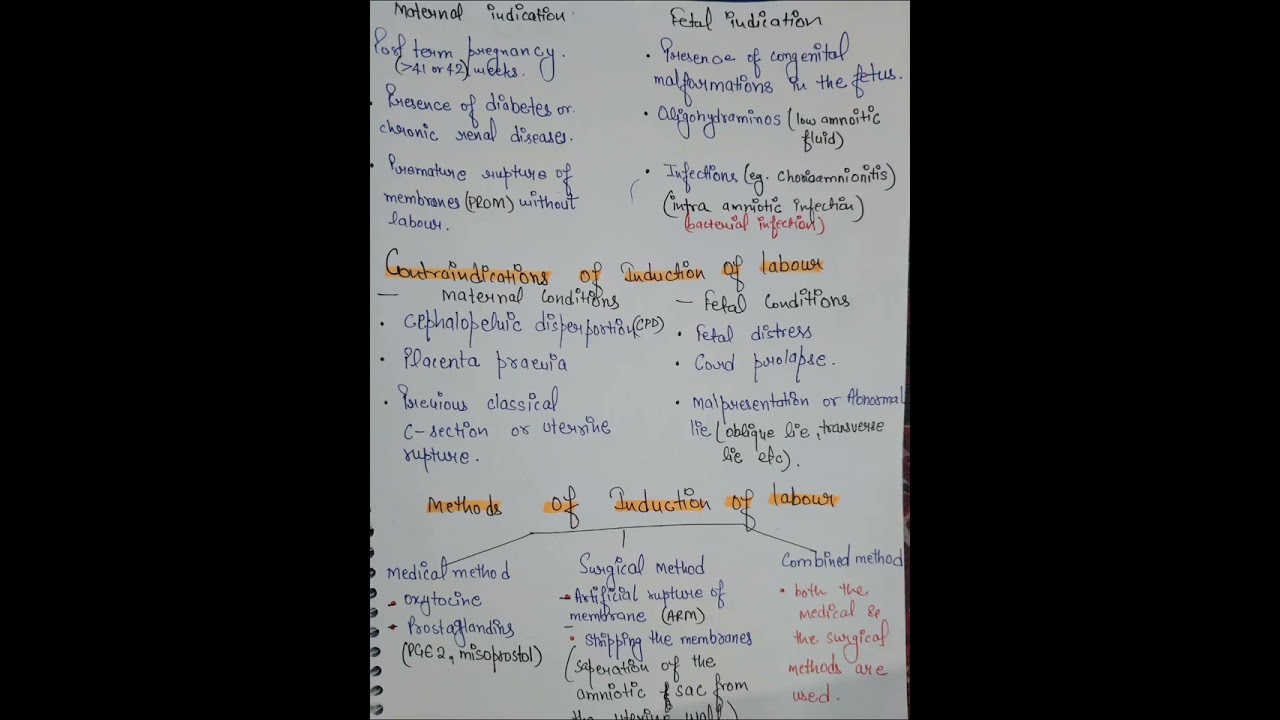 Maternal indication.
Post term pregnancy.
(>41 or 42) weeks.
• Presence of diabetes or
chronic renal diseases.
• Premature rupture of
membranes (PROM) without
labour.
Fetal indication
• Presence of congenital
malformations in the fetus.
• Oligohydraminos (low amnoitic
fluid)
• Infections (eg. Chorioamnionitis)
(intra amniotic infection)
(bacterial infection)
Contraindications of Induction of labour
— Maternal Conditions
• Cephalopelvic disperportion (CPD)
• Placenta praevia
• Previous classical
C-section or uterine
rupture.
— Fetal Conditions
• Fetal distress
• Cord prolapse.
• Malpresentation or Abnormal
lie (oblique lie, transverse
lie etc).
Methods of Induction of labour
Medical method
• Oxytocine
• Prostaglandins
(PGE2, misoprostol)
Surgical method
• Artificial rupture of
membrane (ARM)
• Stripping the membranes
(saperation of the
amniotic sac from
the uterine wall)
Combined method
• both the
medical &
the surgical
methods are
used.